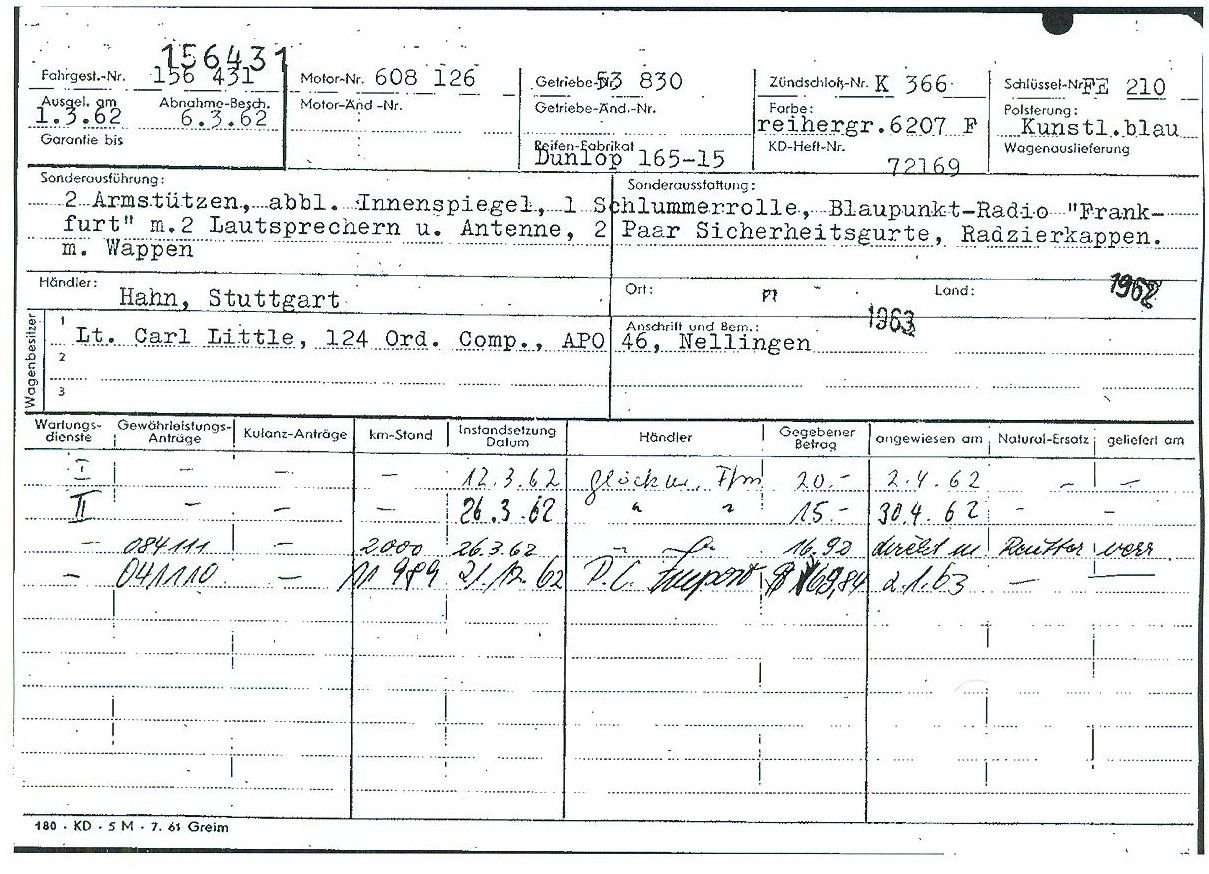 156431
Fahrgest.-Nr. 156 431 Motor-Nr. 608 126 Getriebe-Nr. 53 830 Zündschloß-Nr. K 366 Schlüssel-Nr. FE 210
Ausgel. am Abnahme-Besch. Motor-Änd.-Nr. Getriebe-Änd.-Nr. Farbe: Polsterung:
1.3.62 6.3.62 reihergr.6207 F Kunstl.blau
Garantie bis Reifen-Fabrikat KD-Heft-Nr. Wagenauslieferung
Dunlop 165-15 72169
Sonderausführung: Sonderausstattung:
2 Armstützen, abbl. Innenspiegel, 1 Schlummerrolle, Blaupunkt-Radio "Frank-
furt" m.2 Lautsprechern u. Antenne, 2 Paar Sicherheitsgurte, Radzierkappen.
m. Wappen
Händler: Hahn, Stuttgart Ort: Land: 1962
1963
Wagenbesitzer
1 Lt. Carl Little, 124 Ord. Comp., APO 46, Nellingen
Anschrift und Bem.:
2
3
Wartungs-dienste Gewährleistungs-Anträge Kulanz-Anträge km-Stand Instandsetzung Datum Händler Gegebener Betrag angewiesen am Natural-Ersatz geliefert am
I - - - 12.3.62 Glöckler, Ffm 20.- 2.4.62 - -
II - - - 26.3.62 " " 15.- 30.4.62 - -
- 084111 - 2000 26.3.62 " " 16.92 direkt m Reutter verr
- 041110 - 11 989 21.12.62 P.C. 2.1.63 - -
180 · KD · 5 M · 7. 61 Greim